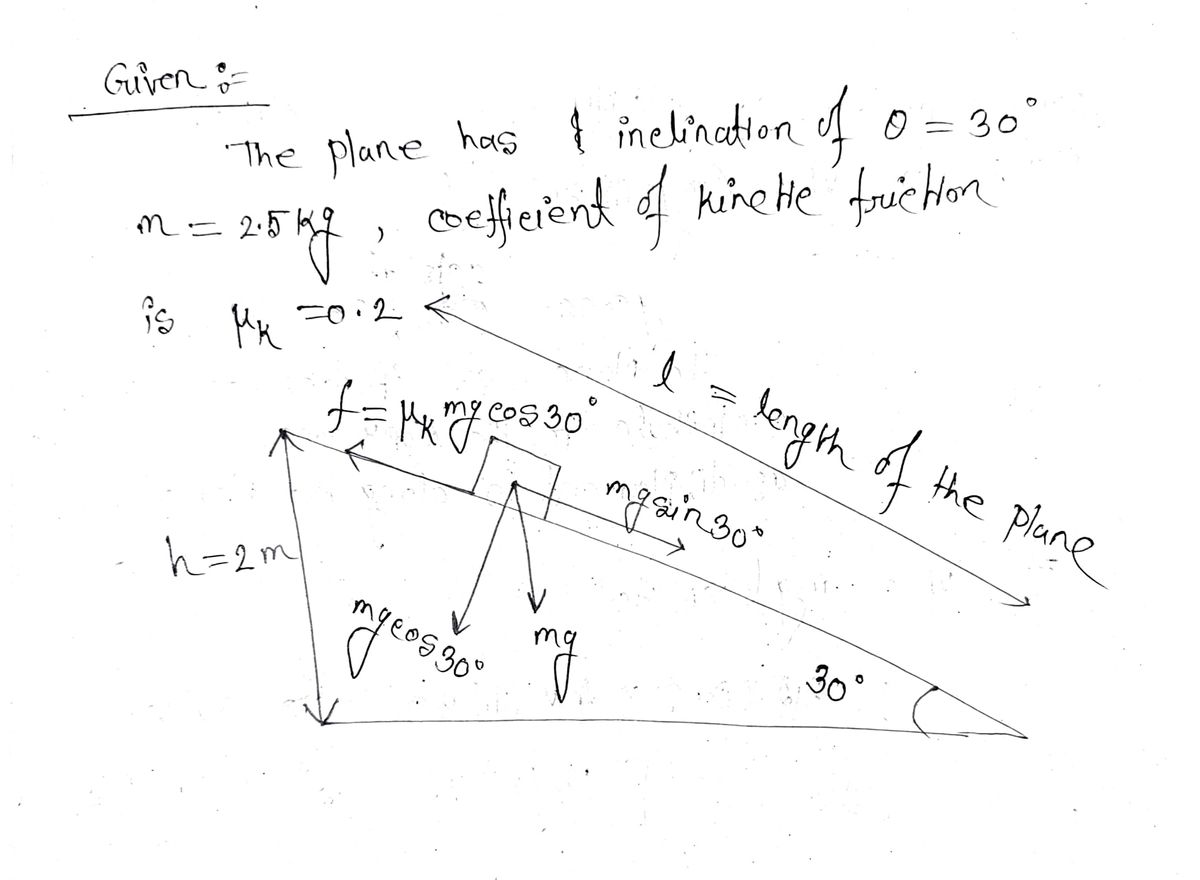 Given :-
The plane has inclination of θ = 30°
m = 2.5 kg , coefficient of kinetic friction
is μk = 0.2
l = length of the plane
f = μk mg cos 30°
mg sin 30°
h = 2 m
mg cos 30°
mg
30°